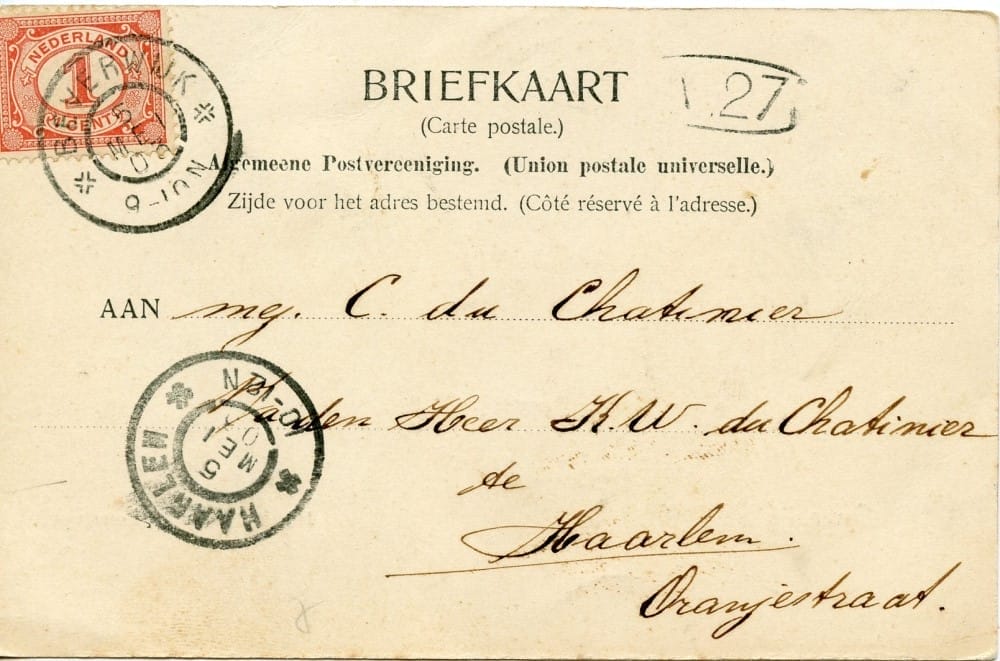 NEDERLAND
1
CENT
BEVERWIJK
5 MEI 0
9-10N
BRIEFKAART
27
(Carte postale.)
Algemeene Postvereeniging. (Union postale universelle.)
Zijde voor het adres bestemd. (Côté réservé à l'adresse.)
AAN mej. C. du Chatinier
p/a den Heer K. W. du Chatinier
te
Haarlem.
Oranjestraat.
HAARLEM
5 MEI 0
10-12N